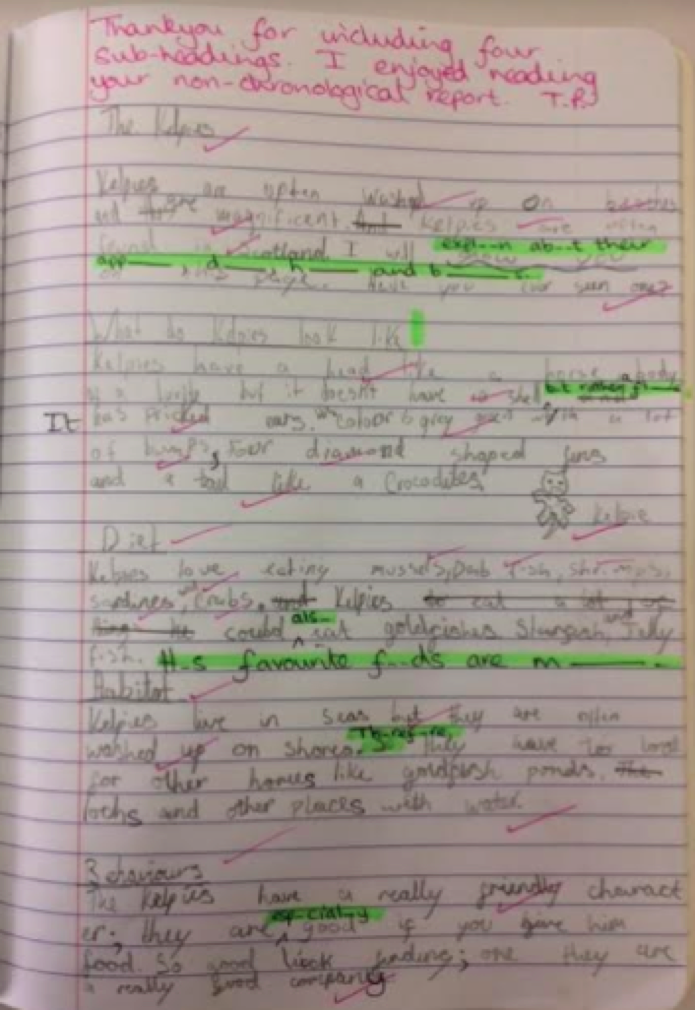 Thankyou for including four
sub-headings. I enjoyed reading
your non-chronological report. T.P.
The Kelpies
Kelpies are often washed up on beaches
and are magnificent. And Kelpies are often
found in Scotland. I will expl..n ab..t their
app____, d____, h____, and b____s.
page. Have you ever seen one?
What do Kelpies look like
Kelpies have a head like a horse a body
of a turtle but it doesn't have a shell but rather
It has pricked ears. colour is grey green with a lot
of bumps, four diamond shaped fins
and a tail like a Crocodiles
Kelpie
Diet
Kelpies love eating mussels, Dab fish, shrimps,
sardines, Crabs, and Kelpies to eat a lot of
could als_ eat goldfishes Starfish, and Jelly
fish. H.s favourite f..ds are m____.
Habitat
Kelpies live in seas but they are often
washed up on shores. Th.ref.re, they have to look
for other homes like goldfish ponds, the
lochs and other places with water.
Behaviours
The Kelpies have a really friendly charact
er; they are esp.cial.y good if you give him
food. So good luck finding; one they are
a really good company